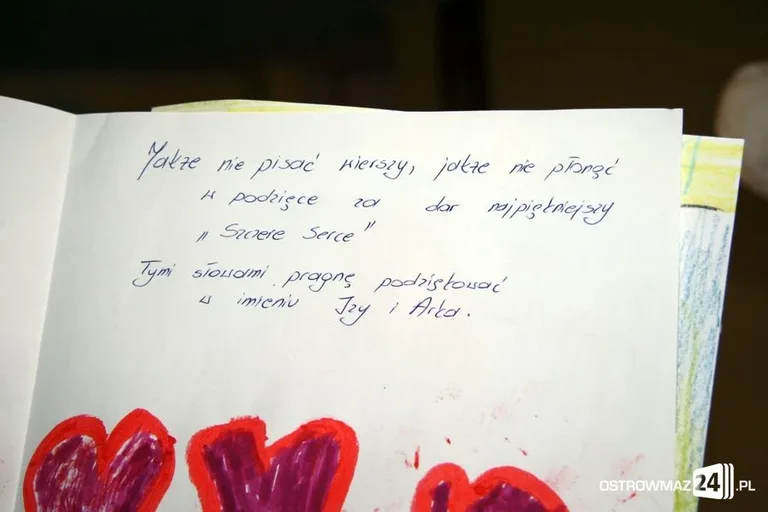 Jakże nie pisać wierszy, jakże nie płonąć
w podzięce za dar najpiękniejszy
„Szczere Serce"
Tymi słowami pragnę podziękować
w imieniu Izy i Arka.
OSTROWMAZ24.PL